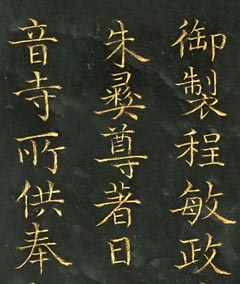 御製程敏政
朱彝尊著日
音寺所供奉